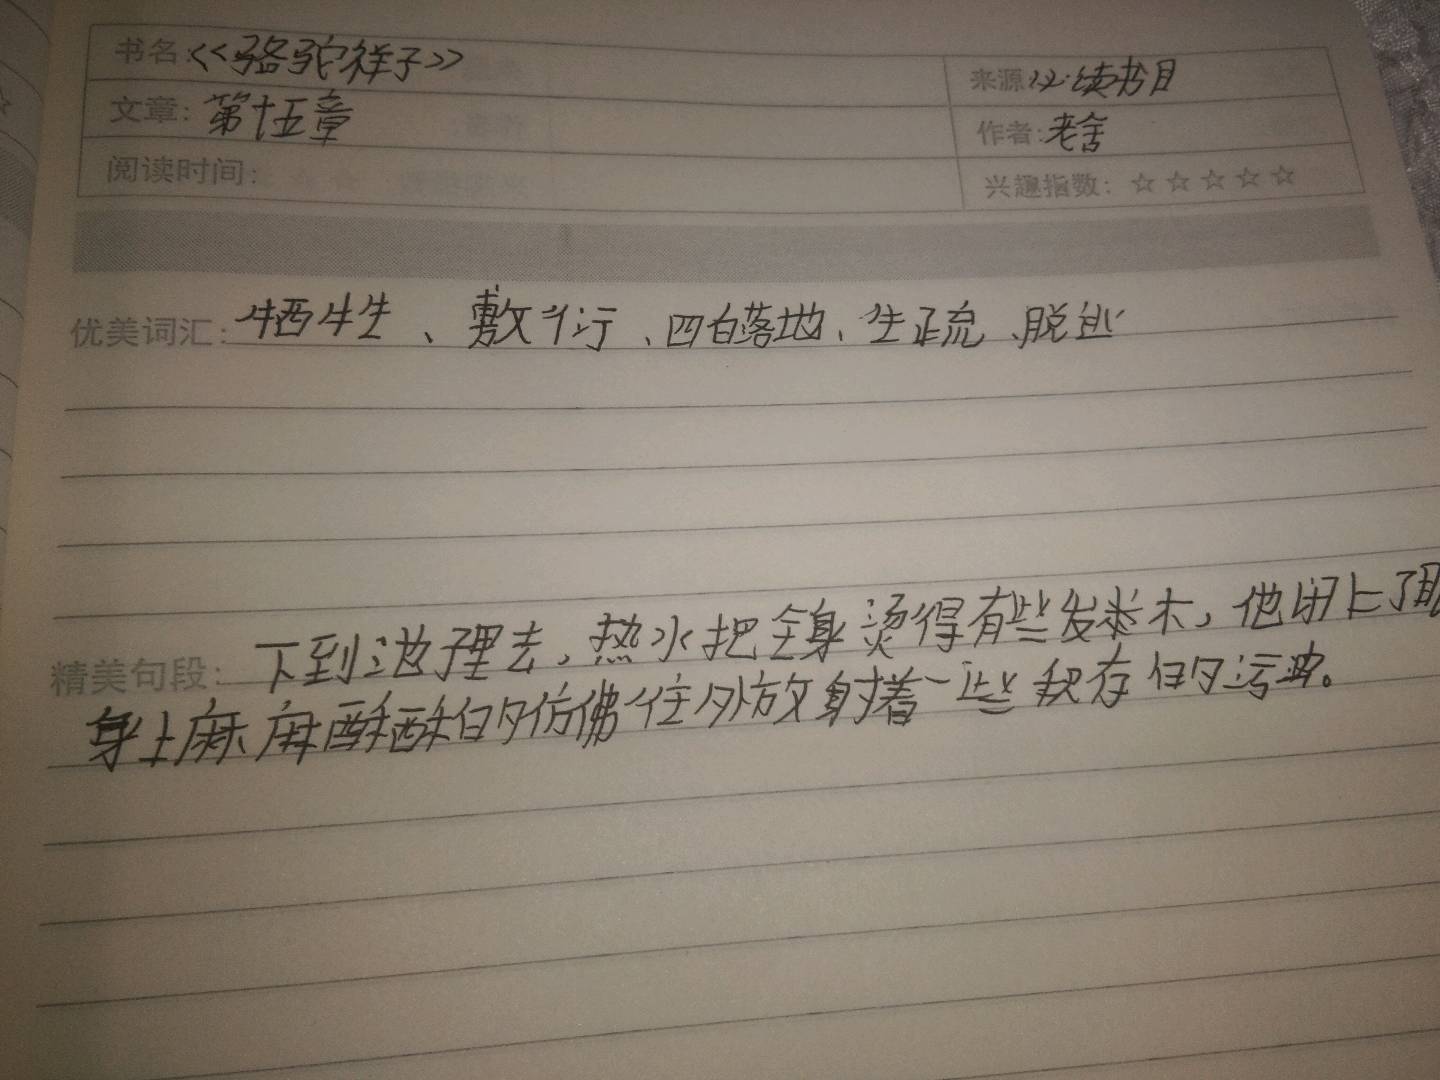 书名:<<骆驼祥子>>
来源:必读书目
文章:第十五章
作者:老舍
阅读时间:
兴趣指数:☆☆☆☆☆
优美词汇:牺牲、敷衍、四白落地、生疏、脱逃
精美句段:下到池子里去,热水把全身烫得有些发木,他闭上了眼
身上麻麻酥酥的仿佛往外放射着一些积存的污浊。